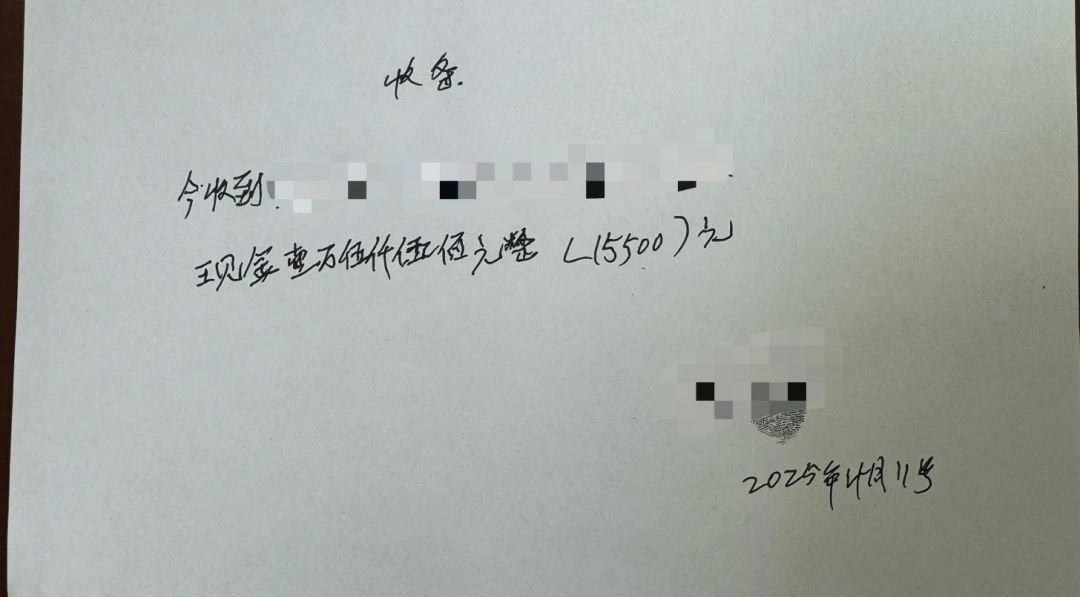 收条.
今收到
现金壹万伍仟伍佰元整(15500)元
2025年4月11号